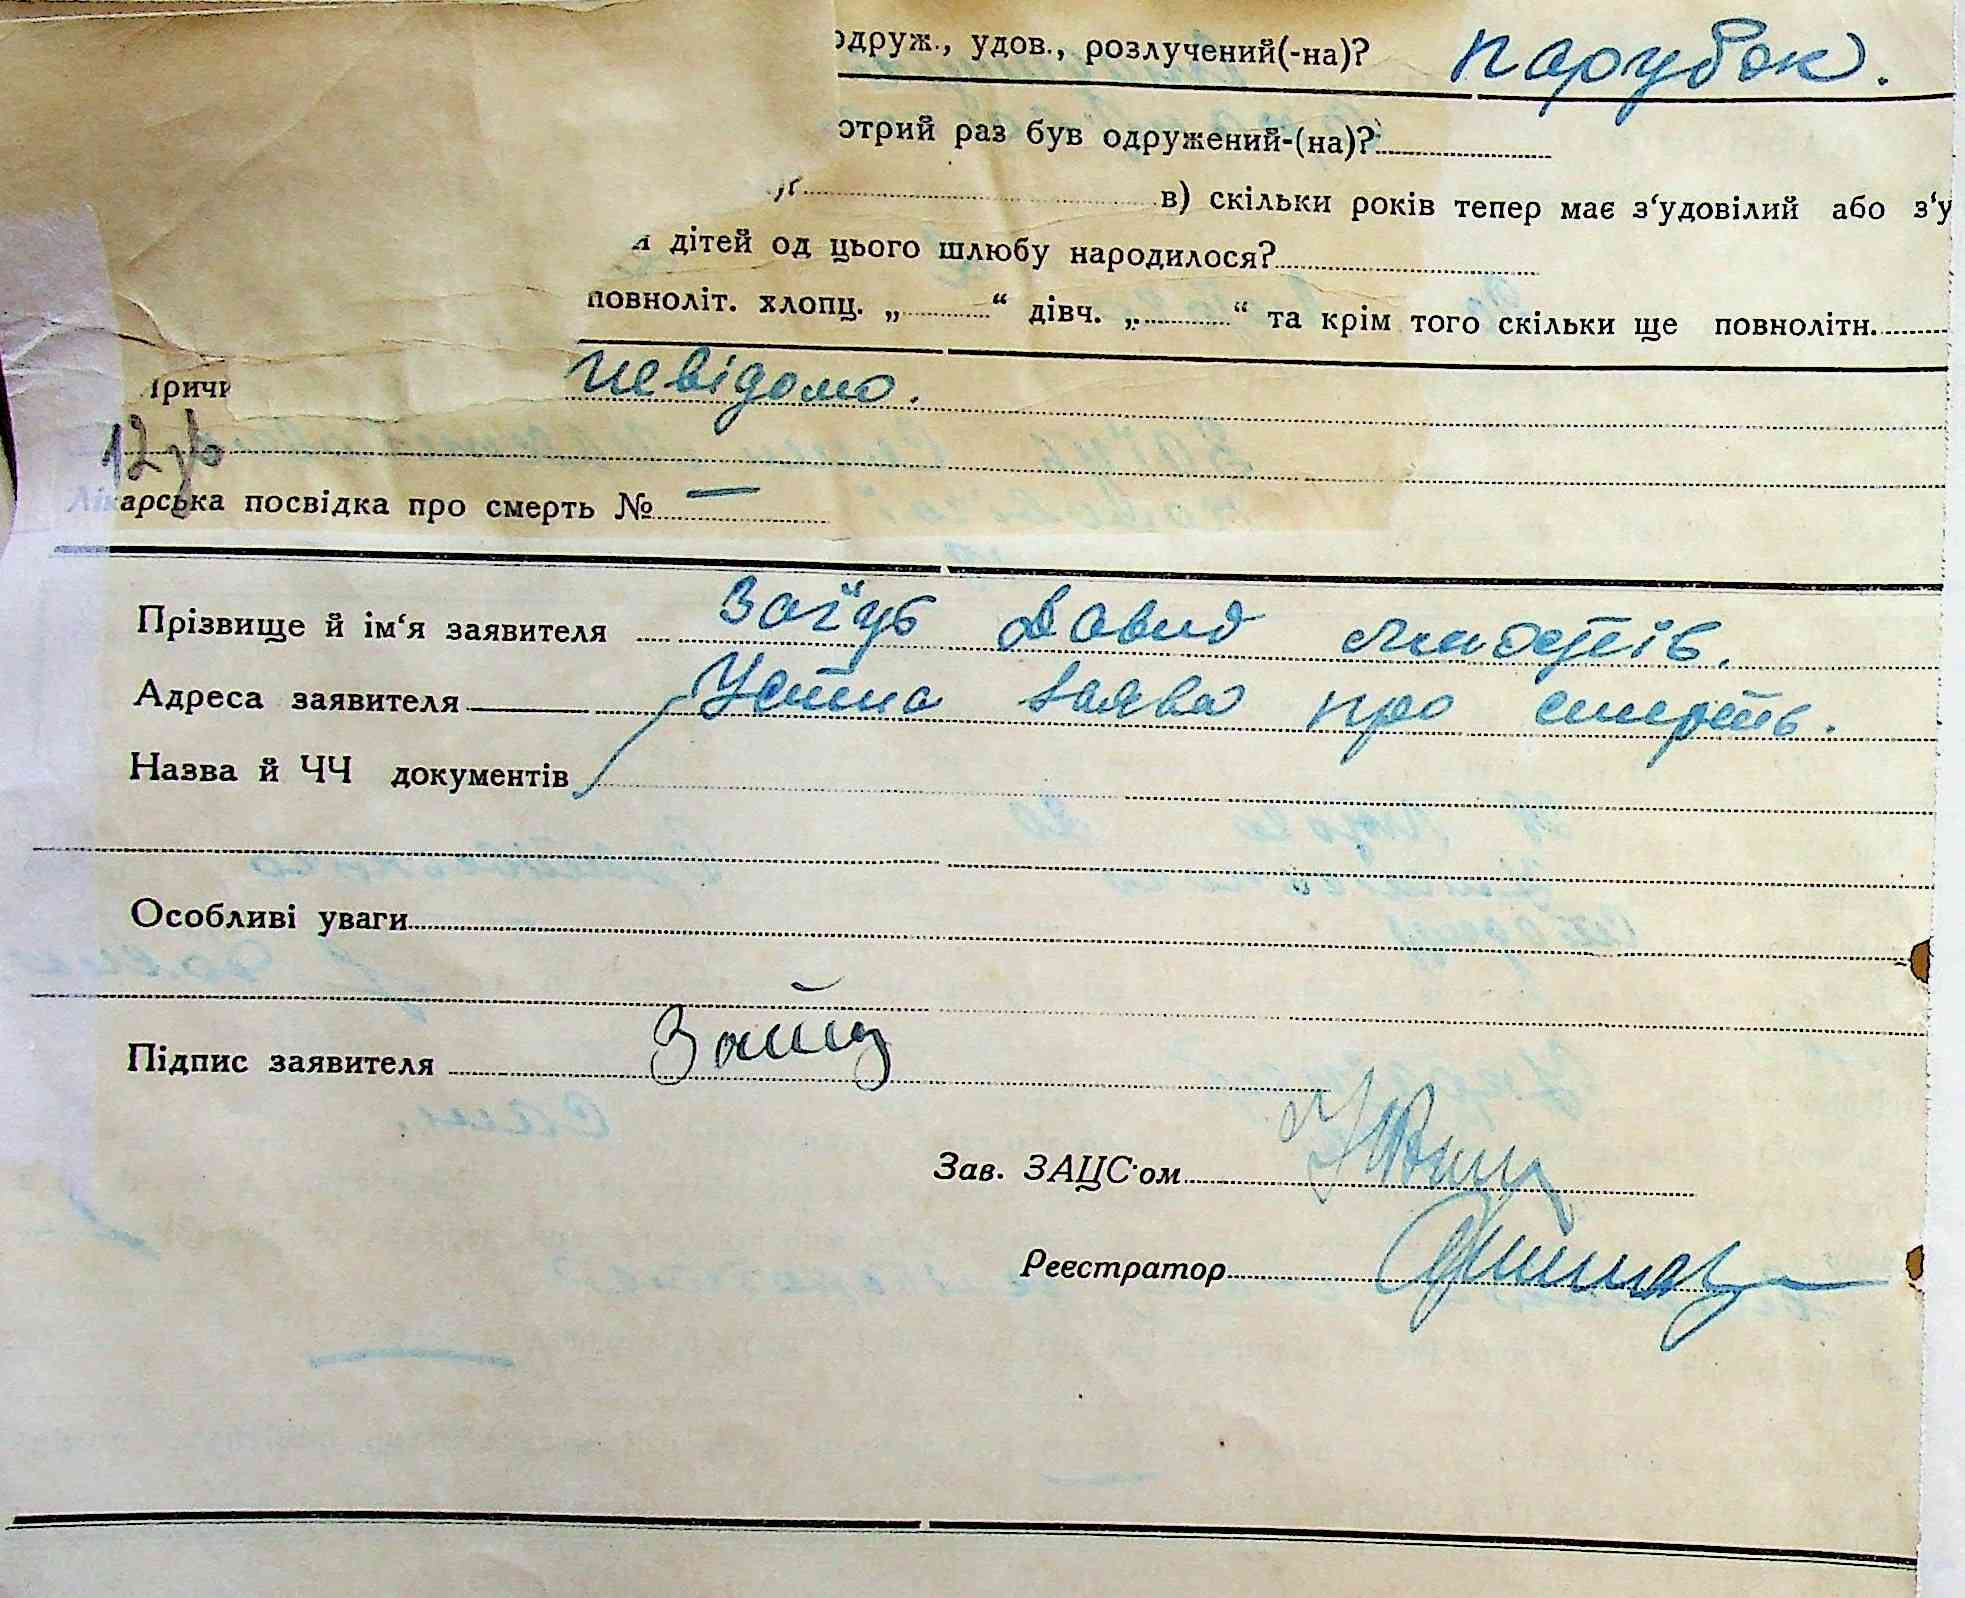 одруж., удов., розлучений(-на)? парубок.
отрий раз був одружений-(на)?
в) скільки років тепер має з‘удовілий або з‘у
дітей од цього шлюбу народилося?
повноліт. хлопц. „ “ дівч. „ “ та крім того скільки ще повнолітн.
ричи невідомо.
12
Лікарська посвідка про смерть № —
Прізвище й ім‘я заявителя Заїць Давид
Адреса заявителя Устна заява про смерть.
Назва й ЧЧ документів
Особливі уваги
Підпис заявителя
Зав. ЗАЦС·ом
Реєстратор